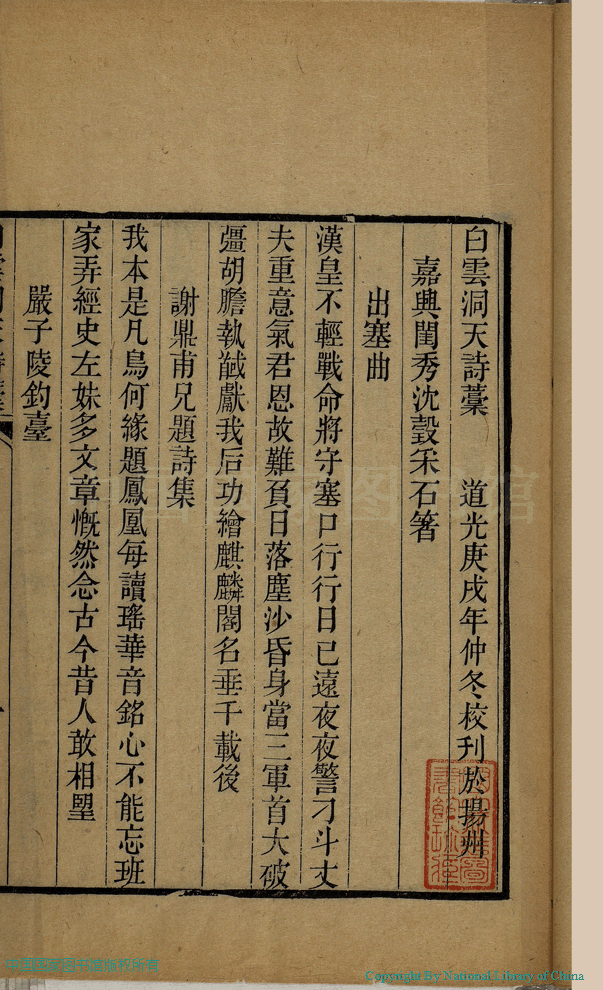 白雲洞天詩藁 道光庚戌年仲冬校刊於揚州
嘉興閨秀沈瑴采石箸
出塞曲
漢皇不輕戰命將守塞口行行日已遠夜夜警刁斗丈
夫重意氣君恩故難負日落塵沙昏身當三軍首大破
彊胡膽執馘獻我后功繪麒麟閣名垂千載後
謝鼎甫兄題詩集
我本是凡鳥何緣題鳳凰每讀瑤華音銘心不能忘班
家弄經史左妹多文章慨然念古今昔人敢相朢
嚴子陵釣臺
中国国家图书馆版权所有
Copyright By National Library of China